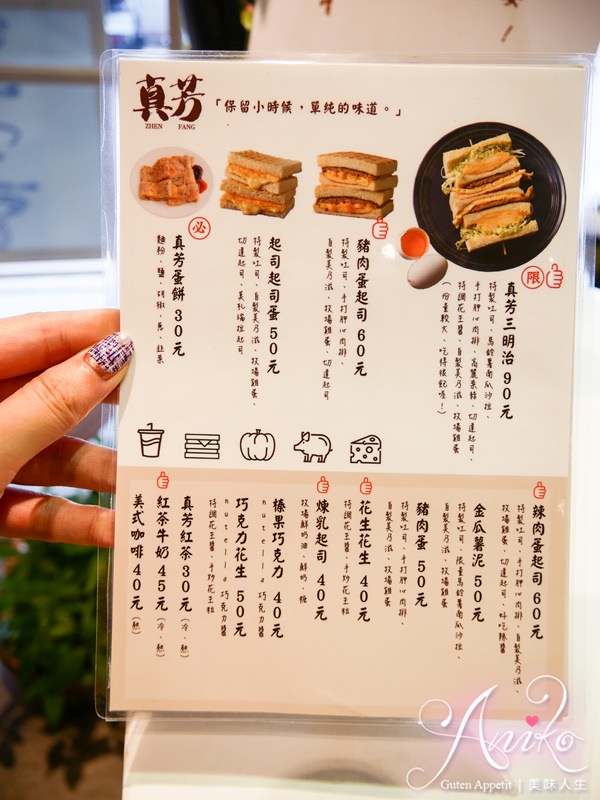 真芳
ZHEN FANG
「保留小時候，單純的味道。」
限
真芳三明治 90元
特製吐司、馬鈴薯南瓜沙拉、
手打胛心肉排、高麗菜絲、切達起司、
特調花生醬、自製美乃滋、牧場雞蛋
(份量較大，吃得很飽喔！)
豬肉蛋起司 60元
特製吐司、手打胛心肉排、
自製美乃滋、牧場雞蛋、切達起司
起司起司蛋 50元
特製吐司、自製美乃滋、牧場雞蛋、
切達起司、莫札瑞拉起司
必
真芳蛋餅 30元
麵粉、鹽、胡椒、蔥、韭菜
辣肉蛋起司 60元
特製吐司、手打胛心肉排、自製美乃滋、
牧場雞蛋、切達起司、好吃辣醬
金瓜薯泥 50元
特製吐司、限量馬鈴薯南瓜沙拉、
自製美乃滋、牧場雞蛋
豬肉蛋 50元
特製吐司、手打胛心肉排、
自製美乃滋、牧場雞蛋
花生花生 40元
特調花生醬、手炒花生粒
煉乳起司 40元
牧場鮮奶油、鮮奶、糖
榛果巧克力 40元
nutella 巧克力醬
巧克力花生 50元
nutella 巧克力醬
特調花生醬、手炒花生粒
真芳紅茶 30元 (冷、熱)
紅茶牛奶 45元 (冷、熱)
美式咖啡 40元 (熱)
Aniko
Guten Appetit | 美味人生